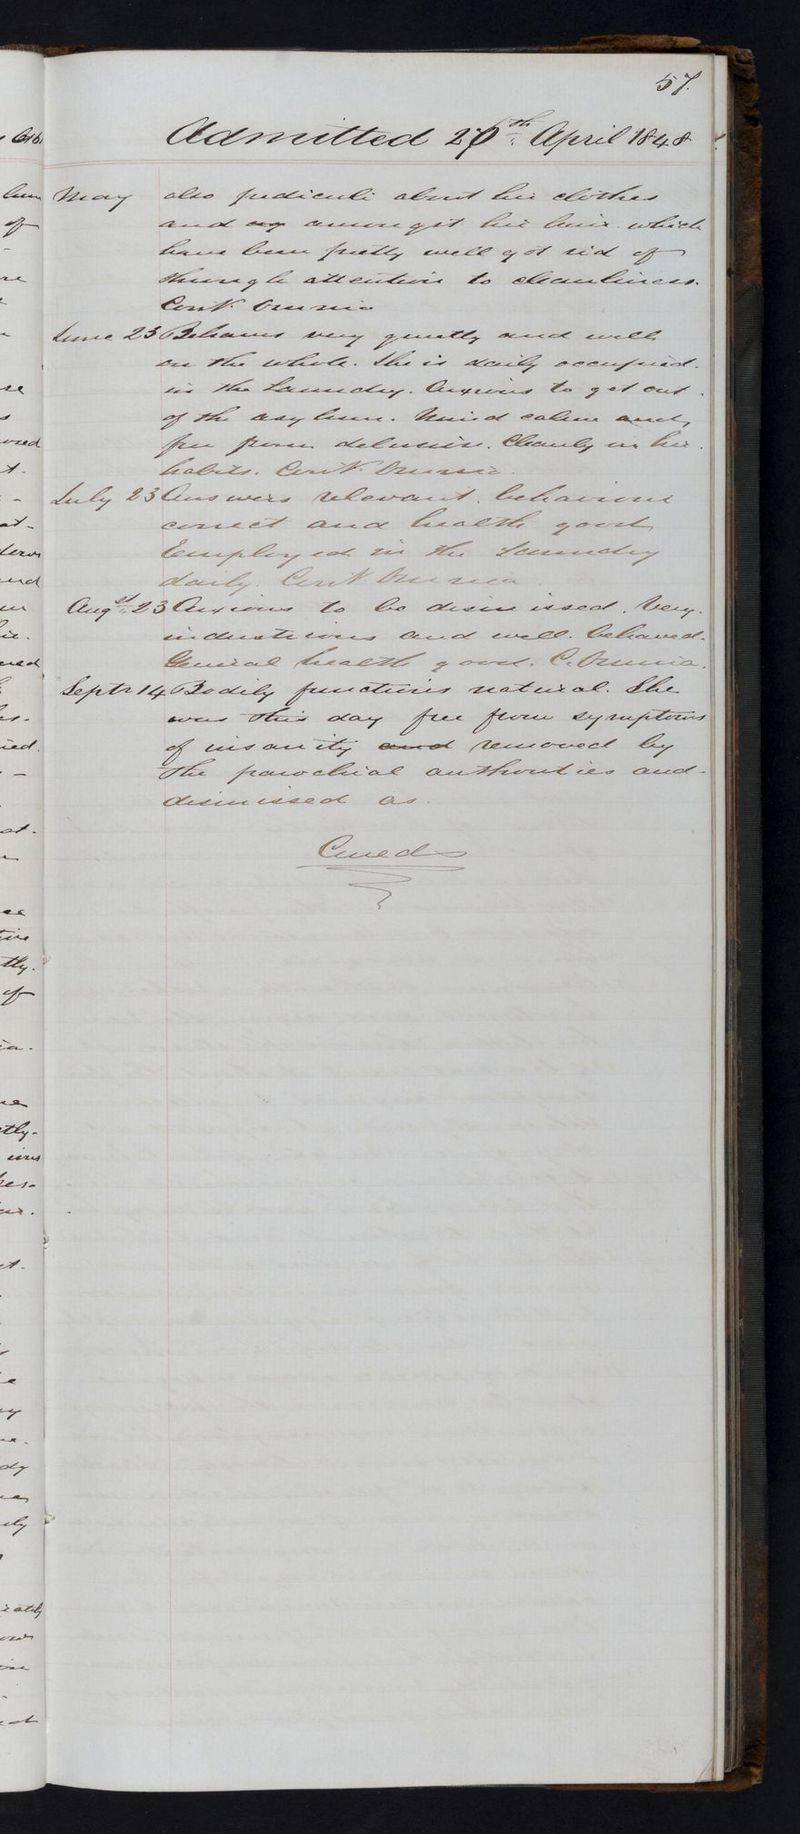 57.
Admitted 26th April 1848
May also pediculi about her clothes
and amongst her hair which
have been pretty well got rid of
through attention to cleanliness.
Cont. Omnia
June 23 Behaves very quietly and well
on the whole. She is daily occupied
in the Laundry. Anxious to get out
of the asylum. Mind calm and
free from delusion. Cleanly in her
habits. Cont. Omnia.
July 23 Answers relevant, behaviour
correct and health good
Employed in the Laundry
daily. Cont. Omnia.
Augst 23 Anxious to be dismissed. Very
industrious and well behaved.
General health good. C. Omnia.
Septr 14 Bodily functions natural. She
was this day free from symptoms
of insanity and removed by
the parochial authorities and
dismissed as
Cured